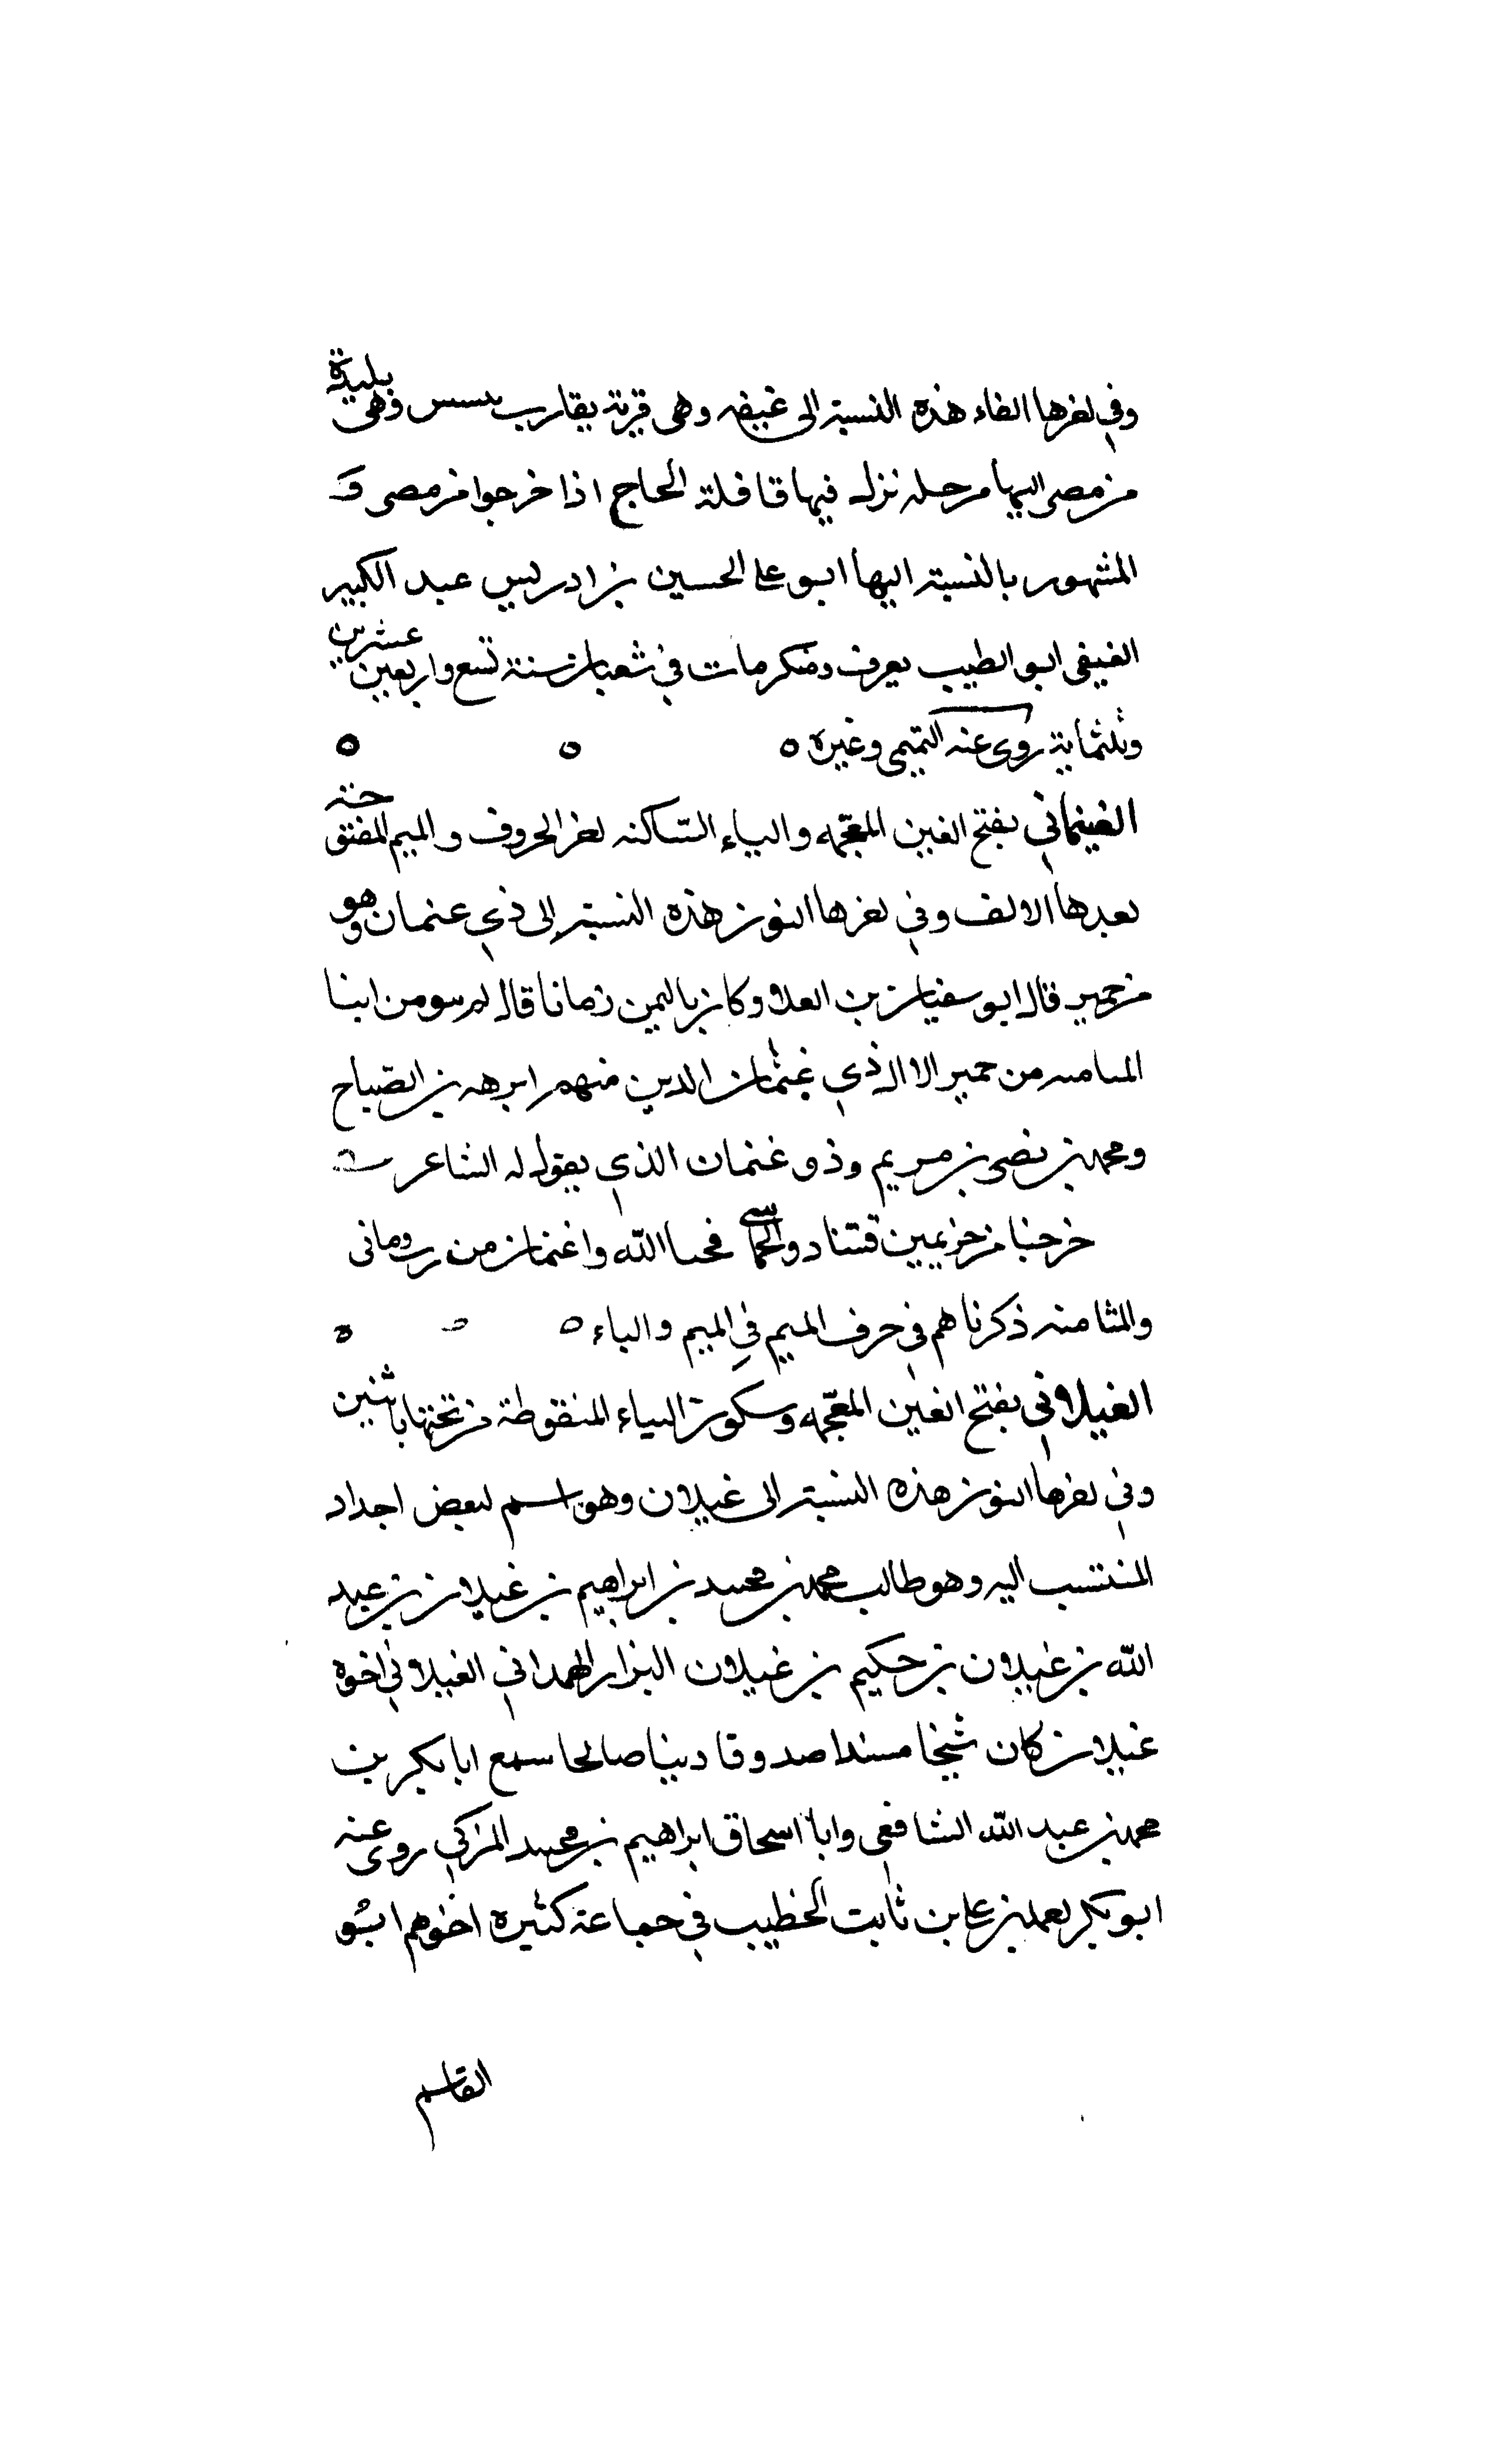 وفي اخرها الفاء هذه النسبة الى غيفه وهى قرية يقارب بلبيس وهى بليدة
من مصر اليها مرحله نزل فيها قافلة الحاج اذا خرجوا من مصر و
المشهور بالنسبة اليها ابو على الحسين بن ادريس عبد الكبير
الغيفى ابو الطيب يعرف ومنكر مات في شعبان سنة تسع واربعين عشرين
وثلثماية روى عنه التميمى وغيره ه ه ه
الغيمانى بفتح الغين المعجمه والياء الساكنه اخر الحروف والميم المفتوحة
بعدها الالف وفي اخرها النون هذه النسبة الى ذي غيمان وهو
من حمير قال ابو سفيان بن العلا وكان باليمن زمانا قال لم سو من ابنا
المثامنه من حمير الا ال ذي غيمان الذين منهم ابرهه بن الصباح
ومحمد بن نصر بن مريم وذو غيمان الذي يقول له الشاعر
خرجنا من خزيمين قتنا ذو فحيا الله وا غيمان من رومانى
والمثامنه ذكرناهم في حرف الميم في الميم والباء ه ه ه
الغيلانى بفتح الغين المعجمه وسكون الياء المنقوطة من تحتها باثنين
وفي اخرها النون هذه النسبة الى غيلان وهو اسم لبعض اجداد
المنتسب اليه وهو طالب محمد بن محمد بن ابراهيم بن غيلان بن عبد
الله بن غيلان بن حكيم بن غيلان البزاز الهمداني الغيلاني اخوه
غيلان كان شيخا مسندا صدوقا دينا صالحا سمع ابا بكر بن
محمد بن عبد الله الشافعى وابا اسحاق ابراهيم بن محمد المزكي روى عنه
ابو بكر احمد بن علي بن ثابت الخطيب في جماعة كثيرة اخرهم ابو
القاسم